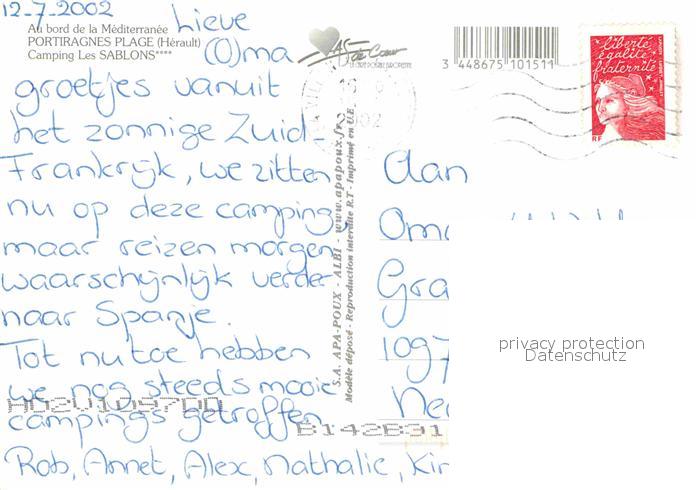 12-7-2002
Au bord de la Méditerranée
PORTIRAGNES PLAGE (Hérault)
Camping Les SABLONS****
Lieve
(O)ma
groetjes vanuit
het zonnige Zuid
Frankrijk, we zitten
nu op deze camping,
maar reizen morgen
waarschijnlijk verder
naar Spanje.
Tot nu toe hebben
we nog steeds mooie
campings getroffen
Rob, Annet, Alex, Nathalie, Kir
S.A. APA-POUX - ALBI - www.apapoux.fr
Modèle déposé - Reproduction interdite R.T - Imprimé en U.E.
3 448675 101511
liberté
égalité
fraternité
RF
Aan
Oma
Gra
1097
Ne
B142B31
privacy protection
Datenschutz